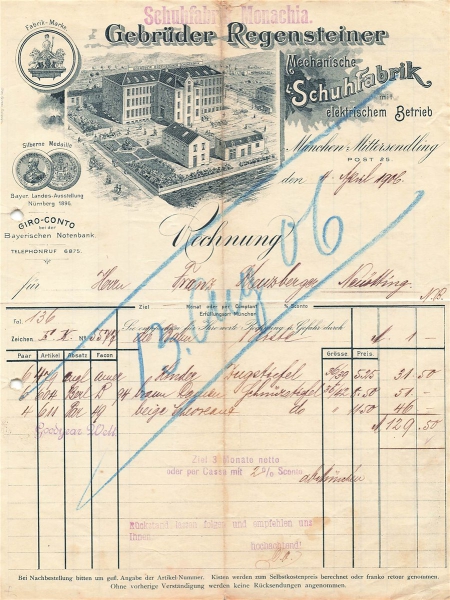 Schuhfabrik Monachia.
Fabrik-Marke
Gebrüder Regensteiner
Mechanische
Schuhfabrik
mit
elektrischem Betrieb
Silberne Medaille
Bayer. Landes-Ausstellung
Nürnberg 1896.
München-Mittersendling
POST 25.
den 4. April 1906
GIRO-CONTO
bei der
Bayerischen Notenbank.
TELEPHONRUF 6875.
Rechnung
13. Aug 06
für Herrn Franz Kreuzberger Neuötting
N.B.
Ziel Monat oder per Comptant % Sconto
Erfüllungsort München
Tel. 136
Zeichen
Sie empfangen für Ihre werte Rechnung u. Gefahr durch die Bahn
1 —
Paar Artikel Absatz Façon Grösse Preis.
6 479 engl. 36/39 5.25 31.50
6 604 Derl D 94 braun 8.50 51 —
4 611 49 beige do 11.50 46 —
129.50
Goodyear Welt
Ziel 3 Monate netto
oder per Cassa mit 2% Sconto
Rückstand lassen folgen und empfehlen uns
Ihnen
hochachtend!
Bei Nachbestellung bitten um gefl. Angabe der Artikel-Nummer. Kisten werden zum Selbstkostenpreis berechnet oder franko retour genommen.
Ohne vorherige Verständigung werden keine Rücksendungen angenommen.